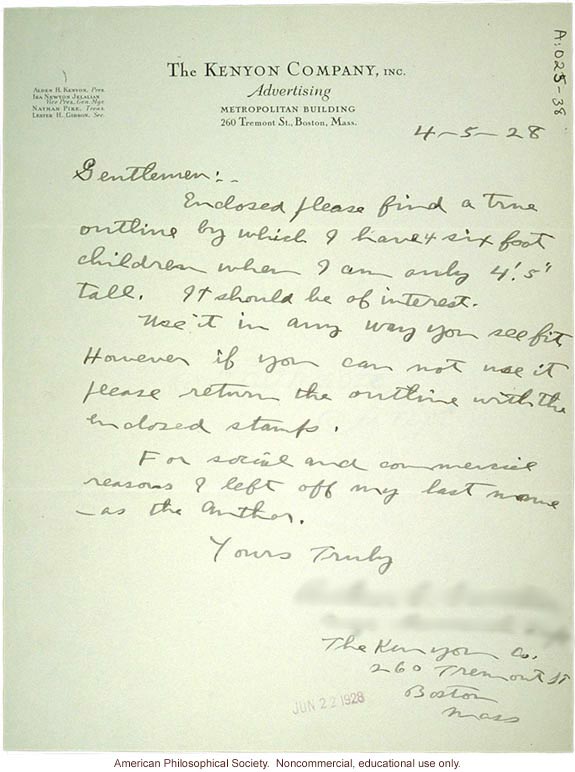 A:025-38
THE KENYON COMPANY, INC.
Advertising
METROPOLITAN BUILDING
260 Tremont St., Boston, Mass.
ALDEN H. KENYON, Pres.
IRA NEWTON JELALIAN
Vice Pres., Gen. Mgr.
NATHAN PIKE, Treas.
LESTER H. GIBSON, Sec.
4-5-28
Gentlemen:--
Enclosed please find a true
outline by which I have 4 six foot
children when I am only 4'.5"
tall. It should be of interest.
Use it in any way you see fit
However if you can not use it
please return the outline with the
enclosed stamps.
For social and commercial
reasons I left off my last name
- as the author.
Yours Truly
The Kenyon Co.
260 Tremont St
Boston
Mass
JUN 22 1928
American Philosophical Society. Noncommercial, educational use only.